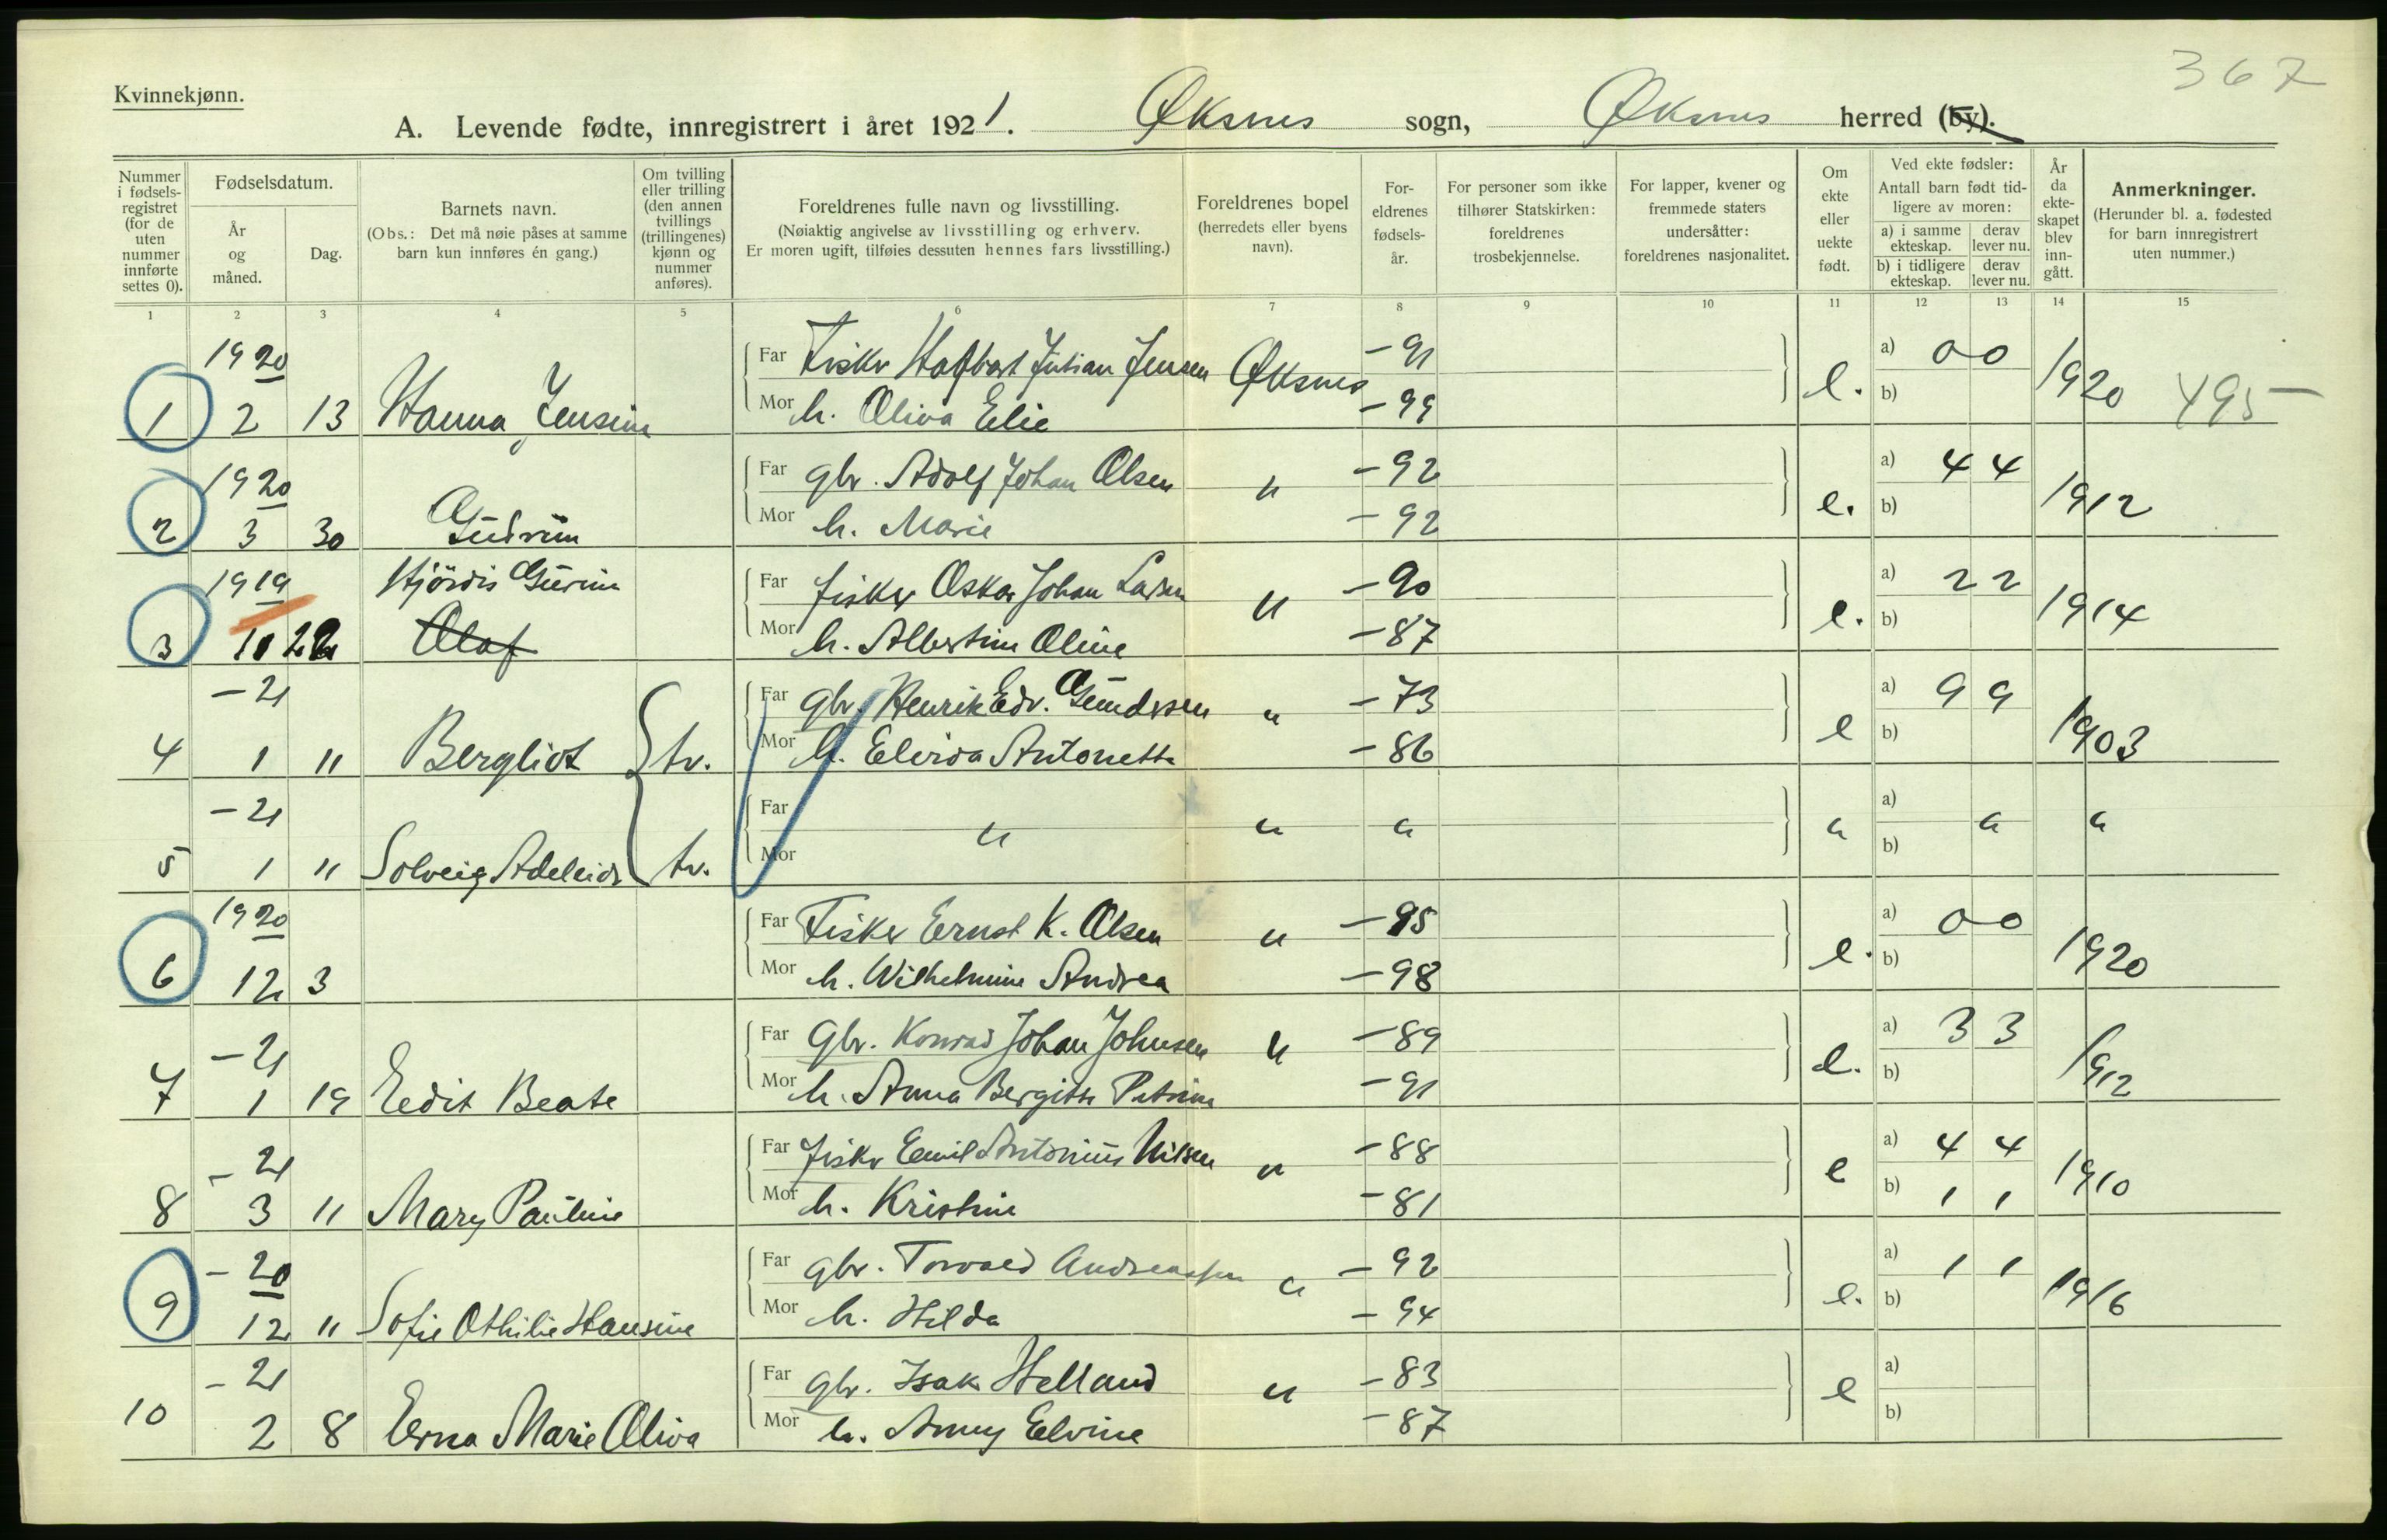 367
Kvinnekjønn.
A. Levende fødte, innregistrert i året 1921. Øksnes sogn, Øksnes herred (by).
Nummer i fødselsregistret (for de uten nummer innførte settes 0).
Fødselsdatum.
År og måned.
Dag.
Barnets navn.
(Obs.: Det må nøie påses at samme barn kun innføres én gang.)
Om tvilling eller trilling (den annen tvillings (trillingenes) kjønn og nummer anføres).
Foreldrenes fulle navn og livsstilling.
(Nøiaktig angivelse av livsstilling og erhverv.
Er moren ugift, tilføies dessuten hennes fars livsstilling.)
Foreldrenes bopel (herredets eller byens navn).
For-eldrenes fødsels-år.
For personer som ikke tilhører Statskirken: foreldrenes trosbekjennelse.
For lapper, kvener og fremmede staters undersåtter: foreldrenes nasjonalitet.
Om ekte eller uekte født.
Ved ekte fødsler:
Antall barn født tidligere av moren:
a) i samme ekteskap.
derav lever nu.
b) i tidligere ekteskap.
derav lever nu.
År da ekte-skapet blev inn-gått.
Anmerkninger.
(Herunder bl. a. fødested for barn innregistrert uten nummer.)
1 2 3 4 5 6 7 8 9 10 11 12 13 14 15
1920 Far Fisker Hafbart Julian Jensen Øksnes -91 a) 0 0
1 2 13 Hanna Jensine Mor h. Oliva Elie -99 e. b) 1920 495
1920 Far gbr. Adolf Johan Olsen " -92 a) 4 4
2 3 30 Gudrun Mor h. Marie -92 e. b) 1912
1919 Hjördis Gurine Far fisker Oskar Johan Larsen " -90 a) 2 2
3 10 22 Olaf Mor h. Albertine Oline -87 e. b) 1914
-21 Far gbr. Henrik Edv. Gundersen " -73 a) 9 9
4 1 11 Bergliot tv. Mor h. Elvida Antonette -86 e b) 1903
-21 Far " " " " a) " "
5 1 11 Solveig Adeleide tv. Mor b)
1920 Far Fisker Ernst K. Olsen " -95 a) 0 0
6 12 3 Mor h. Wilhelmine Andrea -98 e. b) 1920
-21 Far Gbr. Konrad Johan Johnsen " -89 a) 3 3
7 1 19 Edit Beate Mor h. Anna Bergitte Petrine -91 e. b) 1912
-21 Far fisker Emil Antonius Nilsen " -88 a) 4 4
8 3 11 Mary Pauline Mor h. Kristine -81 e b) 1 1 1910
-20 Far gbr. Torvald Andreassen " -92 a) 1 1
9 12 11 Sofie Othilie Hansine Mor h. Hilda -94 e. b) 1916
-21 Far gbr. Isak Helland " -83 a)
10 2 8 Erna Marie Oliva Mor h. Anny Elvine -87 e b)